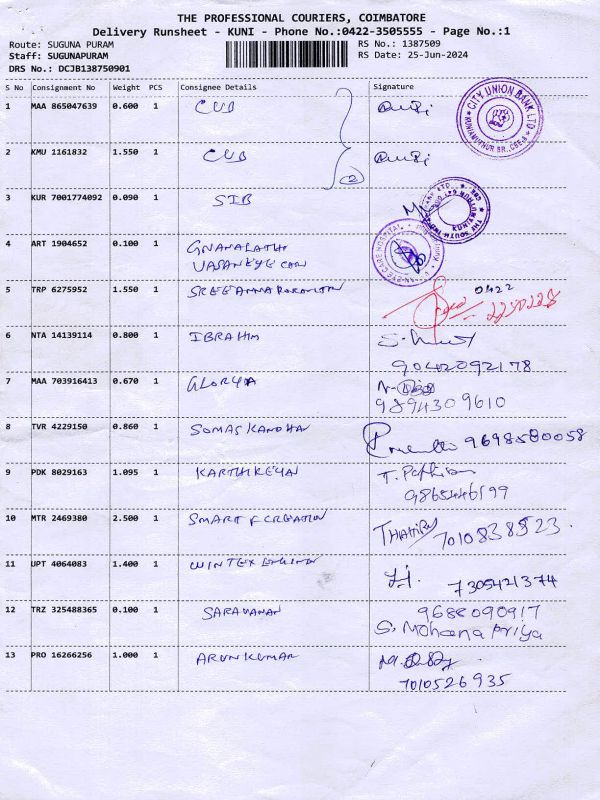 THE PROFESSIONAL COURIERS, COIMBATORE
Delivery Runsheet - KUNI - Phone No.:0422-3505555 - Page No.:1
Route: SUGUNA PURAM RS No.: 1387509
Staff: SUGUNAPURAM RS Date: 25-Jun-2024
DRS No.: DCJB138750901
S No Consignment No Weight PCS Consignee Details Signature
1 MAA 865047639 0.600 1 CUB
CITY UNION BANK LTD
KUNIAMUTHUR BR., CBE-8
2 KMU 1161832 1.550 1 CUB
2
3 KUR 7001774092 0.090 1 SIB
4 ART 1904652 0.100 1
VASAN EYE CARE
5 TRP 6275952 1.550 1 0422
2250228
6 NTA 14139114 0.800 1 IBRAHIM
9042092178
7 MAA 703916413 0.670 1 GLORYA
9894309610
8 TVR 4229150 0.860 1 SOMASKANDHAN 9698580058
9 PDK 8029163 1.095 1 KARTHIKEYAN
9865446199
10 MTR 2469380 2.500 1 SMART F CREATION
7010838523
11 UPT 4064083 1.400 1 WINTEX
7305421374
12 TRZ 325488365 0.100 1 SARAVANAN 9688090917
S. Mohana Priya
13 PRO 16266256 1.000 1 ARUN KUMAR
7010526935